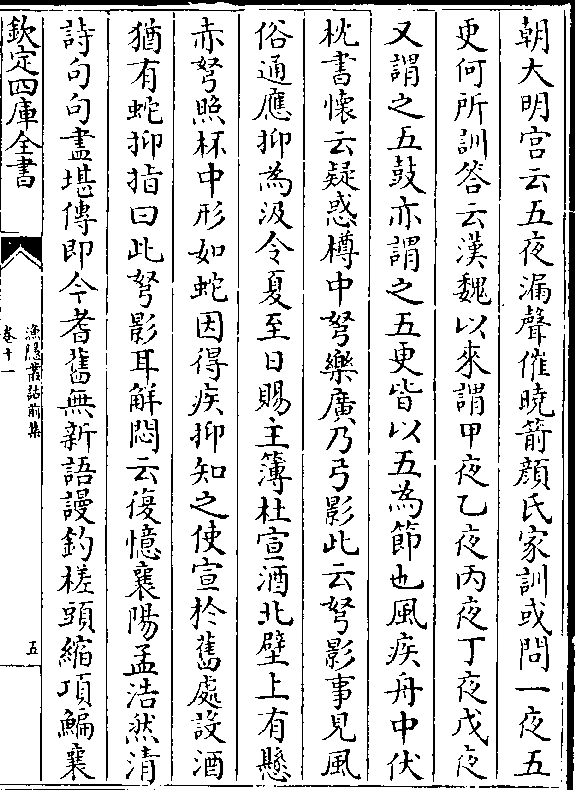 朝大明宫云五夜漏聲催曉箭顔氏家訓或問一夜五
更何所訓答云漢魏以來謂甲夜乙夜丙夜丁夜戊夜
又謂之五鼓亦謂之五更皆以五為節也風疾舟中伏
枕書懷云疑惑樽中弩樂廣乃弓影此云弩影事見風
俗通應抑為汲令夏至日賜主簿杜宣酒北壁上有懸
赤弩照杯中形如蛇因得疾抑知之使宣於舊處設酒
猶有蛇抑指曰此弩影耳解悶云復憶襄陽孟浩然清
詩句句盡堪傳即今耆舊無新語謾釣槎頭縮項鯿襄
欽定四庫全書
漁隱叢話前集
卷十一
五